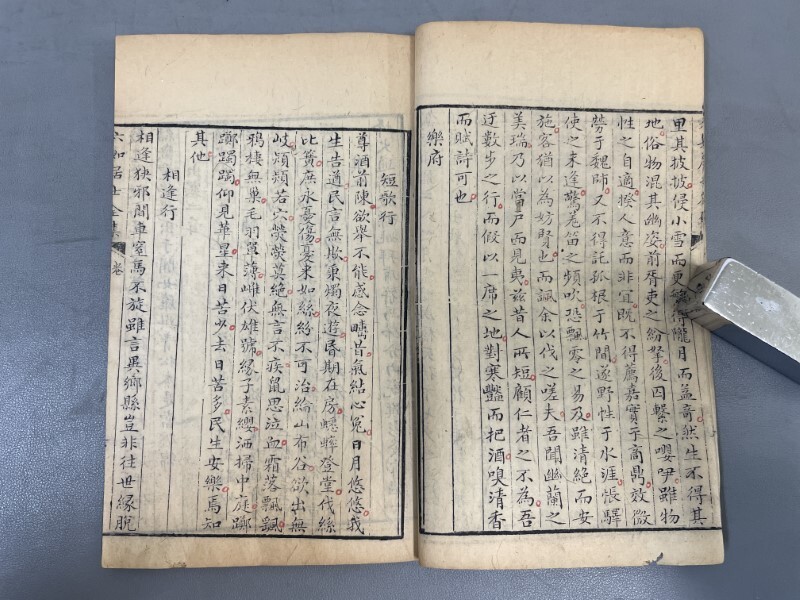 里其披披侵小雪而更繁得隴月而益奇然生不得其
地俗物混其幽姿前胥吏之紛拏後囚繫之嚶咿雖物
性之自適揆人意而非宜既不得薦嘉實于商鼎效微
勞于魏師又不得託孤根于竹間遂野性于水涯悵驛
使之未逢驚羌笛之頻吹恐飄零之易及雖清絕而安
施客猶以為妨賢也而諷余以伐之嗟夫吾聞幽蘭之
美瑞乃以當戶而見夷茲昔人所短顧仁者之不為吾
迂數步之行而假以一席之地對寒豔而把酒嗅清香
而賦詩可也
樂府
短歌行
尊酒前陳欲舉不能感念疇昔氣結心冤日月悠悠我
生告遒民言無欺秉燭夜遊昏期在房蟋蟀登堂伐絲
比簧庶永憂傷憂來如絲紛不可治綸山布谷欲出無
岐熲熲若穴熒熒莫絕無言不疾鼠思泣血霜落飄飄
鴉棲無巢毛羽單薄雌伏雄號緣子素纓洒掃中庭躑
躅躑躅仰見華星來日苦少去日苦多民生安樂焉知
其他
相逢行
相逢狹邪間車窄馬不旋雖言異鄉縣豈非往世緣脫
六如居士全集 卷